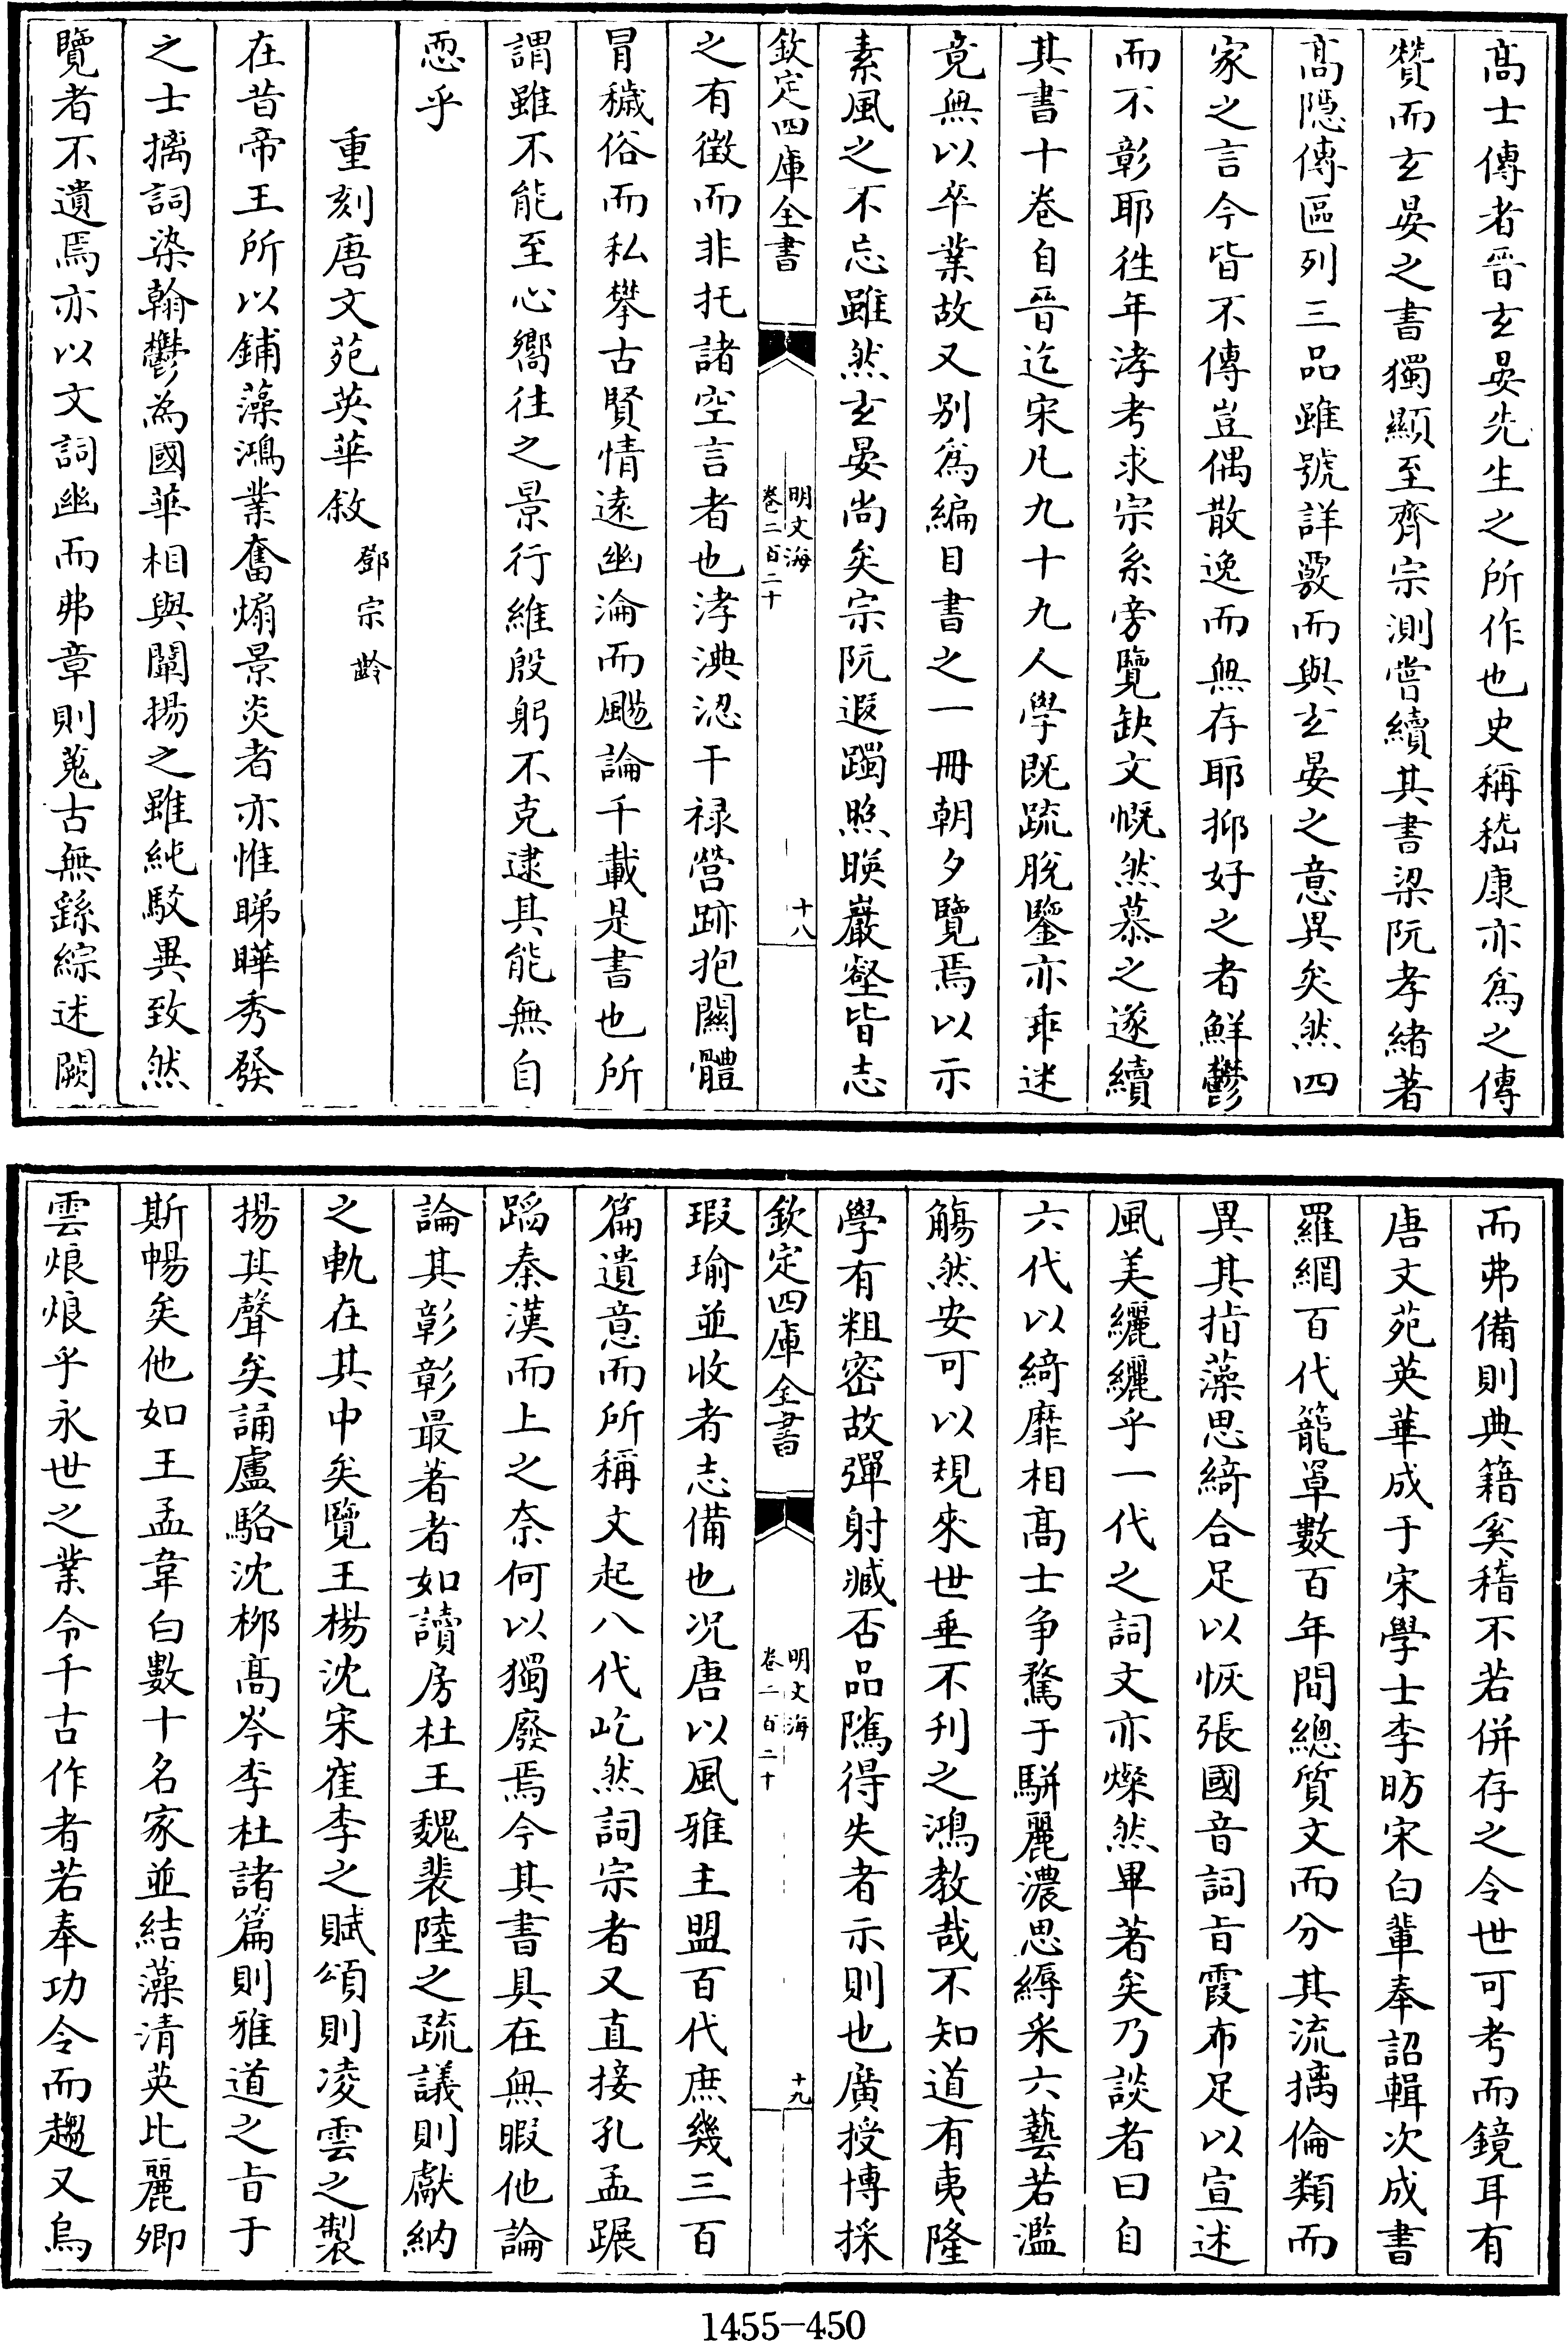 高士傳者晉玄晏先生之所作也史稱嵇康亦為之傳
贊而玄晏之書獨顯至齊宗測嘗續其書梁阮孝緒著
髙隠傳區列三品雖號詳覈而與玄晏之意異矣然四
家之言今皆不傳豈偶散逸而無存耶抑好之者鮮鬱
而不彰耶徃年涍考求宗系旁覽缺文慨然慕之遂續
其書十卷自晉迄宋凡九十九人學既疏脫鑒亦乖迷
竟無以卒業故又别為編目書之一冊朝夕覽焉以示
素風之不忘雖然玄晏尚矣宗阮遐躅照暎巖壑皆志
欽定四庫全書
明文海
卷二百二十
十八
之有徴而非托諸空言者也涍淟涊干禄營跡抱關體
冒穢俗而私攀古賢情遠幽淪而颺論千載是書也所
謂雖不能至心嚮往之景行維殷躬不克逮其能無自
恧乎
重刻唐文苑英華敘
鄧宗齡
在昔帝王所以鋪藻鴻業奮煽景炎者亦惟睇曄秀發
之士摛詞染翰鬱為國華相與闡揚之雖純駁異致然
覽者不遺焉亦以文詞幽而弗章則蒐古無繇綜述闕
而弗備則典籍奚稽不若併存之令世可考而鏡耳有
唐文苑英華成于宋學士李昉宋白輩奉詔輯次成書
羅網百代籠罩數百年間總質文而分其流摛倫類而
異其指藻思綺合足以恢張國音詞旨霞布足以宣述
風美纚纚乎一代之詞文亦燦然畢著矣乃談者曰自
六代以綺靡相髙士争騖于駢麗濃思縟采六藝若濫
觴然安可以規來世垂不刋之鴻教哉不知道有夷隆
學有粗密故彈射臧否品隲得失者示則也廣授博採
欽定四庫全書
明文海
卷二百二十
十九
瑕瑜並收者志備也况唐以風雅主盟百代庶幾三百
篇遺意而所稱文起八代屹然詞宗者又直接孔孟蹍
蹈秦漢而上之奈何以獨廢焉今其書具在無暇他論
論其彰彰最著者如讀房杜王魏裴陸之疏議則獻納
之軌在其中矣覽王楊沈宋崔李之賦頌則凌雲之製
揚其聲矣誦盧駱沈栁髙岑李杜諸篇則雅道之旨于
斯暢矣他如王孟韋白數十名家並結藻清英比麗卿
雲烺烺乎永世之業令千古作者若奉功令而趨又烏
1455-450